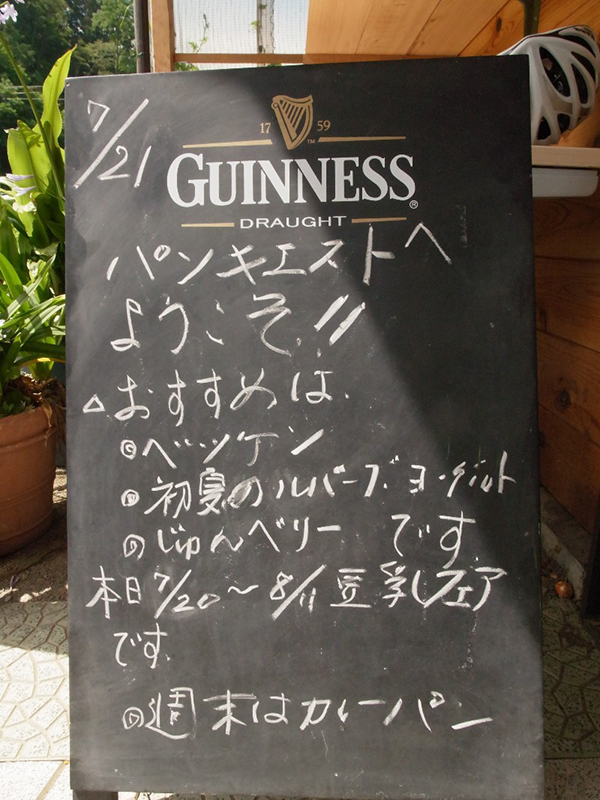 7/21
17 59
GUINNESS
DRAUGHT
パンキエストへ
ようこそ!!
△おすすめは
◎ベーゲン
◎初夏のルバーブヨーグルト
◎じゅんベリーです
本日7/20〜8/11豆乳フェア
です
◎週末はカレーパン